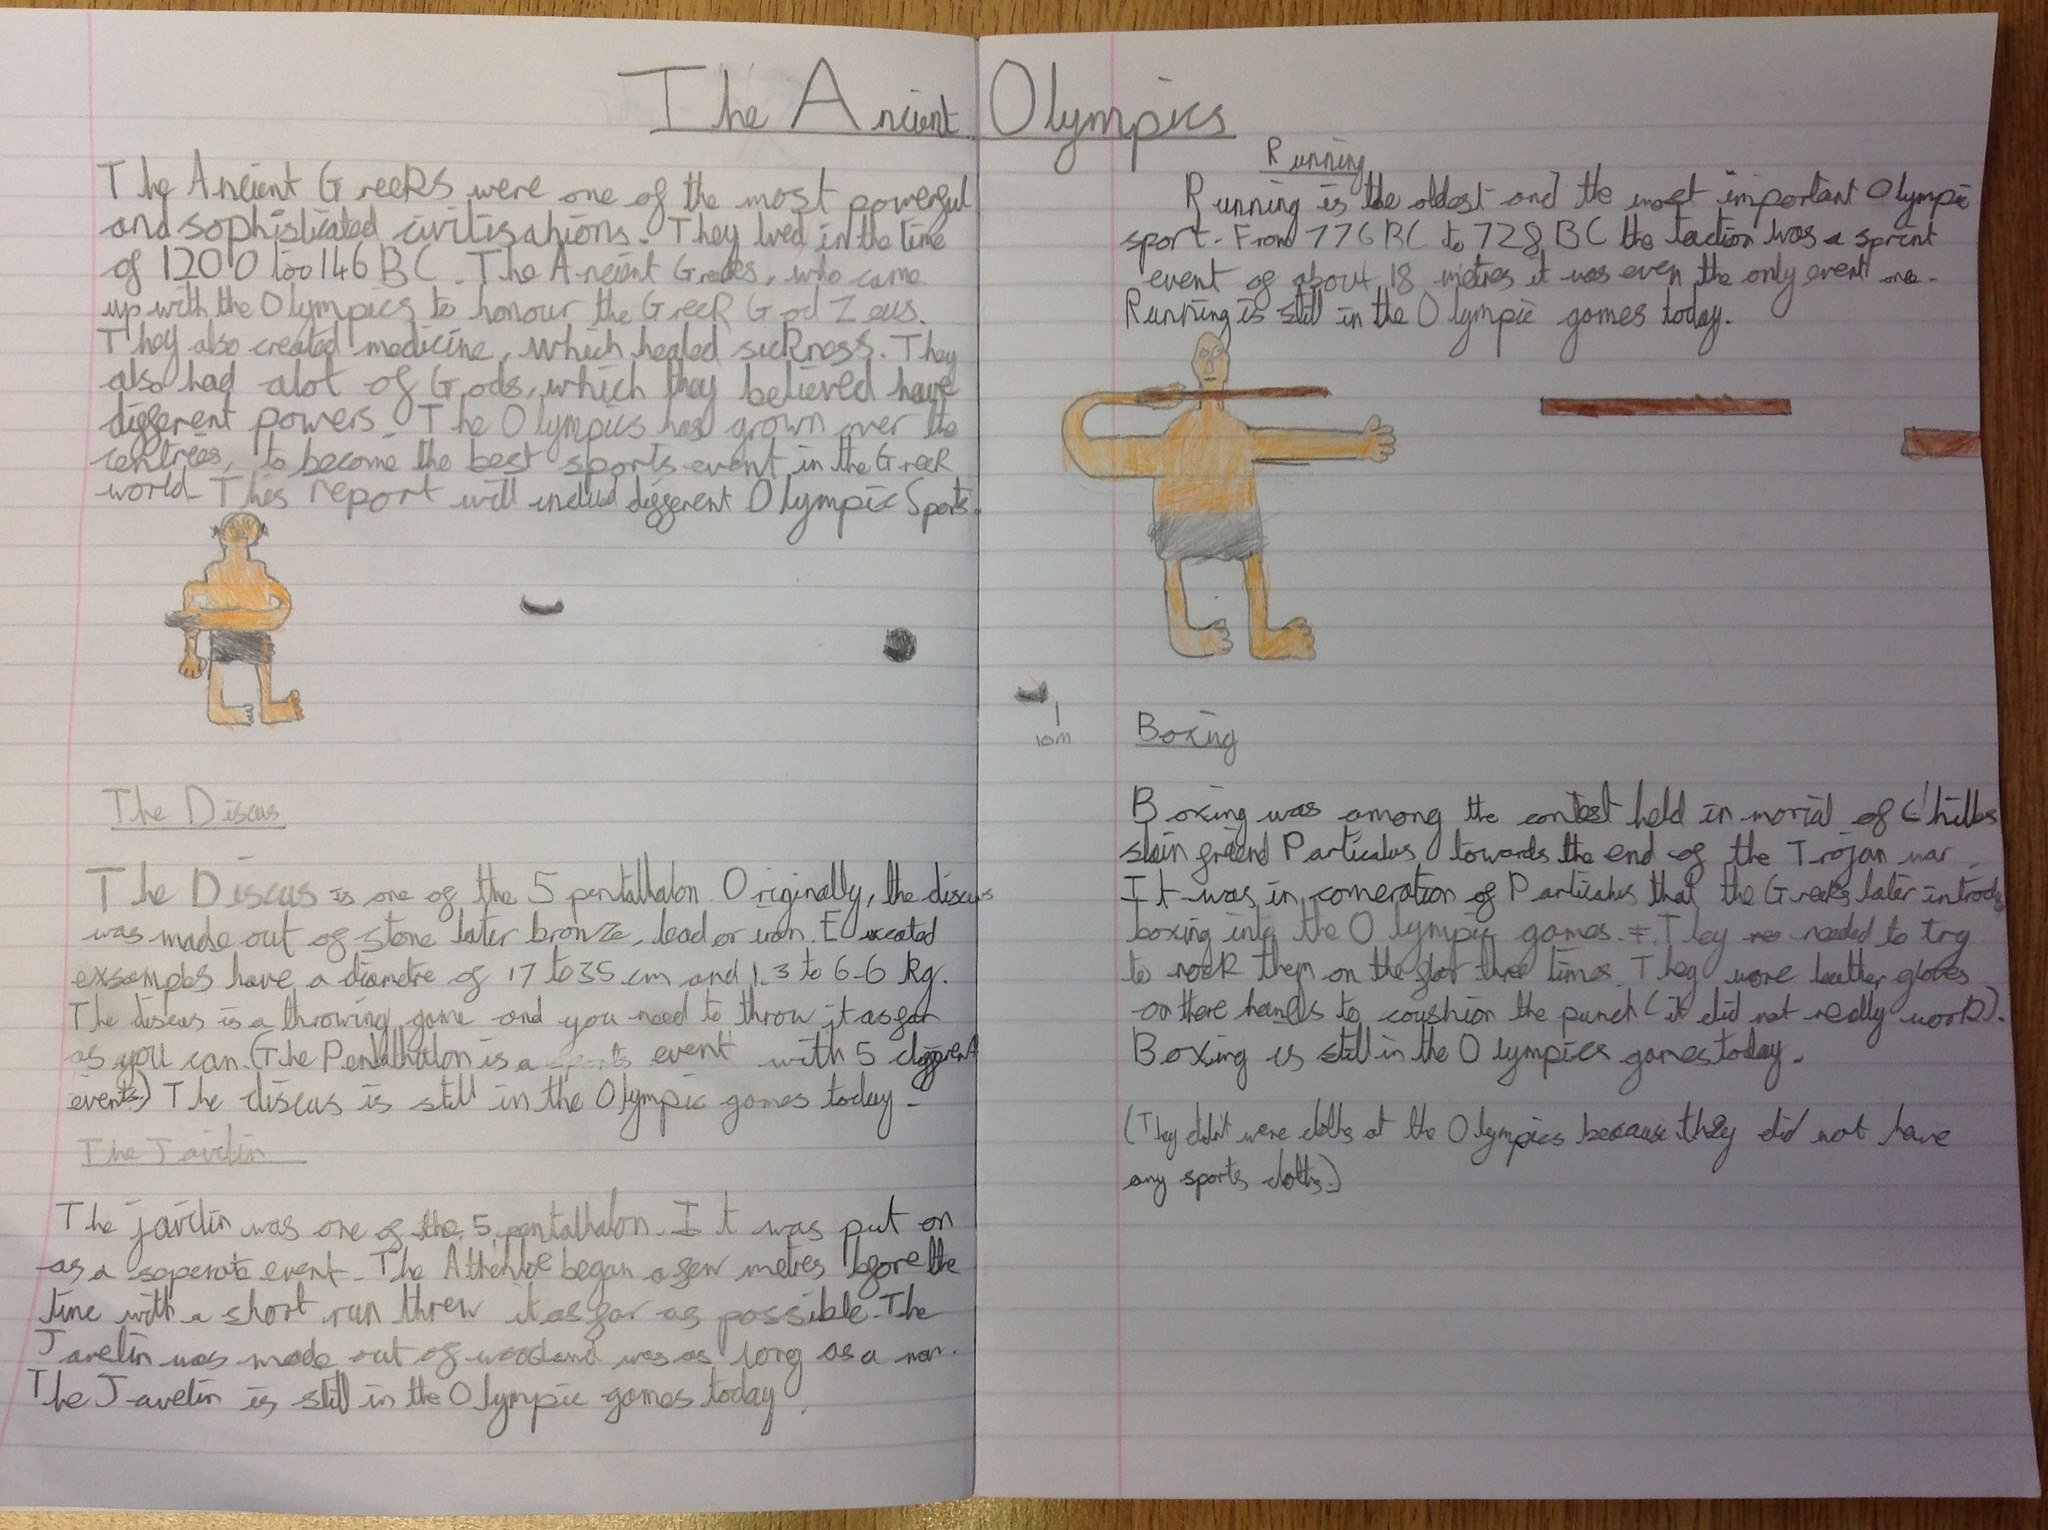 The Ancient Olympics
The Ancient Greeks were one of the most powerful
and sophisticated civilisations. They lived in the time
of 1200 too 146 BC. The Ancient Grekes, who came
up with the Olympics to honour the Greek God Zeus.
They also created medicine, which healed sickness. They
also had alot of Gods, which they believed have
different powers. The Olympics has grown over the
centries, to become the best sports event in the Greek
world. This report will includ different Olympic Sports.
The Discus
The Discus is one of the 5 pentathalon. Originally, the discus
was made out of stone later bronze, lead or iron. Excated
exsamples have a diametre of 17 to 35 cm and 1.3 to 6-6 kg.
The discus is a throwing game and you need to throw it as far
as you can. (The Pentathalon is a event with 5 different
events.) The discus is still in the Olympic games today.
The Javelin
The javelin was one of the 5 pentathalon. It was put on
as a seperate event. The began a few metres before the
line with a short run threw it as far as possible. The
Javelin was made out of wood and was as long as a man.
The Javelin is still in the Olympic games today.
Running
Running is the oldest and the most important Olympic
sport. From 776 BC to 728 BC the was a sprint
event of about 18 metres it was even the only event one.
Running is still in the Olympic games today.
10m
Boxing
Boxing was among the contest held in morial of Chilles
slain friend Particulus towards the end of the Trojan war.
It was in comeration of Particulus that the Greeks later introde
boxing into the Olympic games. They needed to try
to nock them on the flor three times. They wore leather gloves
on there hands to coushion the punch (it did not really work).
Boxing is still in the Olympics games today.
(They didn't were cloths at the Olympics because they did not have
any sports cloths.)